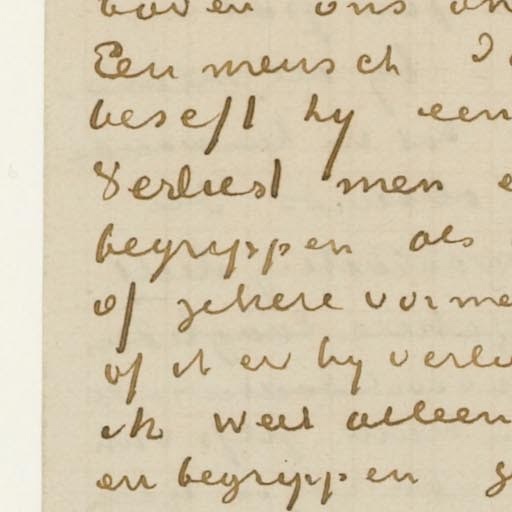 boven ons on
Een mensch
beseft hy een
Verliest men e
begryppen als
of zekere vorme
of it er by verlie
ik weet alleen
en begryppen g